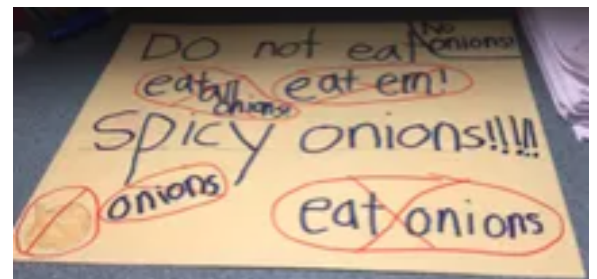 Do not eat
No
onions!
eat all
onions!
eat em!
Spicy onions!!!!!
onions
eat onions